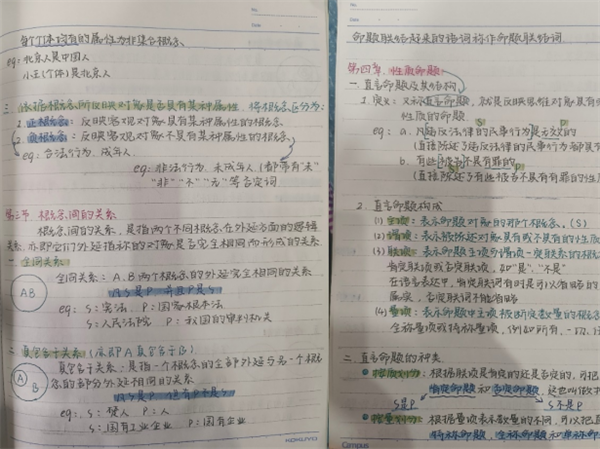 No.
Date
每个个体均有的属性为非集合概念
eg: 北京人是中国人
小王(个体)是北京人
三、依据概念所反映对象是否具有某种属性,将概念区分为:
1. 正概念: 反映客观对象具有某种属性的概念.
2. 负概念: 反映客观对象不具有某种属性的概念.
eg: 合法行为. 成年人.
eg: 非法行为. 未成年人. (都带有"未"
"非" "不" "无" 等否定词
第三节 概念间的关系
概念间的关系, 是指两个不同概念在外延方面的逻辑
关系,亦即它们外延指称的对象是否完全相同而形成的关系
一. 全同关系:
AB
全同关系: A、B两个概念的外延完全相同的关系
所有S是P, 并且P是S
eg: S: 宪法, P: 国家根本法
S: 人民法院 P: 我国的审判机关
二. 真包含于关系 (亦即A真包含于B)
A B
真包含于关系: 是指一个概念的全部外延与另一个概
念的部分外延相同的关系
所有S是P, 但有P不是S
eg: S: 犯人 P: 人
S: 国有工业企业 P: 国有企业
KOKUYO
No.
Date
命题联结起来的语词称作命题联结词
第四章. 性质命题
一. 直言命题及其结构
1. 定义: 又称直言命题, 就是反映思维对象具有
性质的命题.
eg: a. 凡违反法律的民事行为是无效的
(直接陈述了违反法律的民事行为都具
b. 有些被告不是有罪的
(直接陈述了有些被告不具有有罪的性质
2. 直言命题构成
(1) 主项: 表示命题对象的那个概念. (S)
(2) 谓项: 表示被陈述对象具有或不具有的性质
(3) 联项: 表示命题中主项与谓项一定联系的概念
肯定联项或否定联项, 如"是", "不是"
在语言表达中, 肯定联词有时是可以省略的
属项, 否定联词不能省略
(4) 量项: 表示命题中主项被断定数量的概念
全称量项或特称量项, 例如所有. 一切.
二. 直言命题的种类
按质划分: 根据联项是肯定的还是否定的, 可把
肯定命题和否定命题, 这也叫做
S是P S不是P
按量划分: 根据量项表示数量的不同, 可以把直
特称命题, 全称命题和单称命
Campus